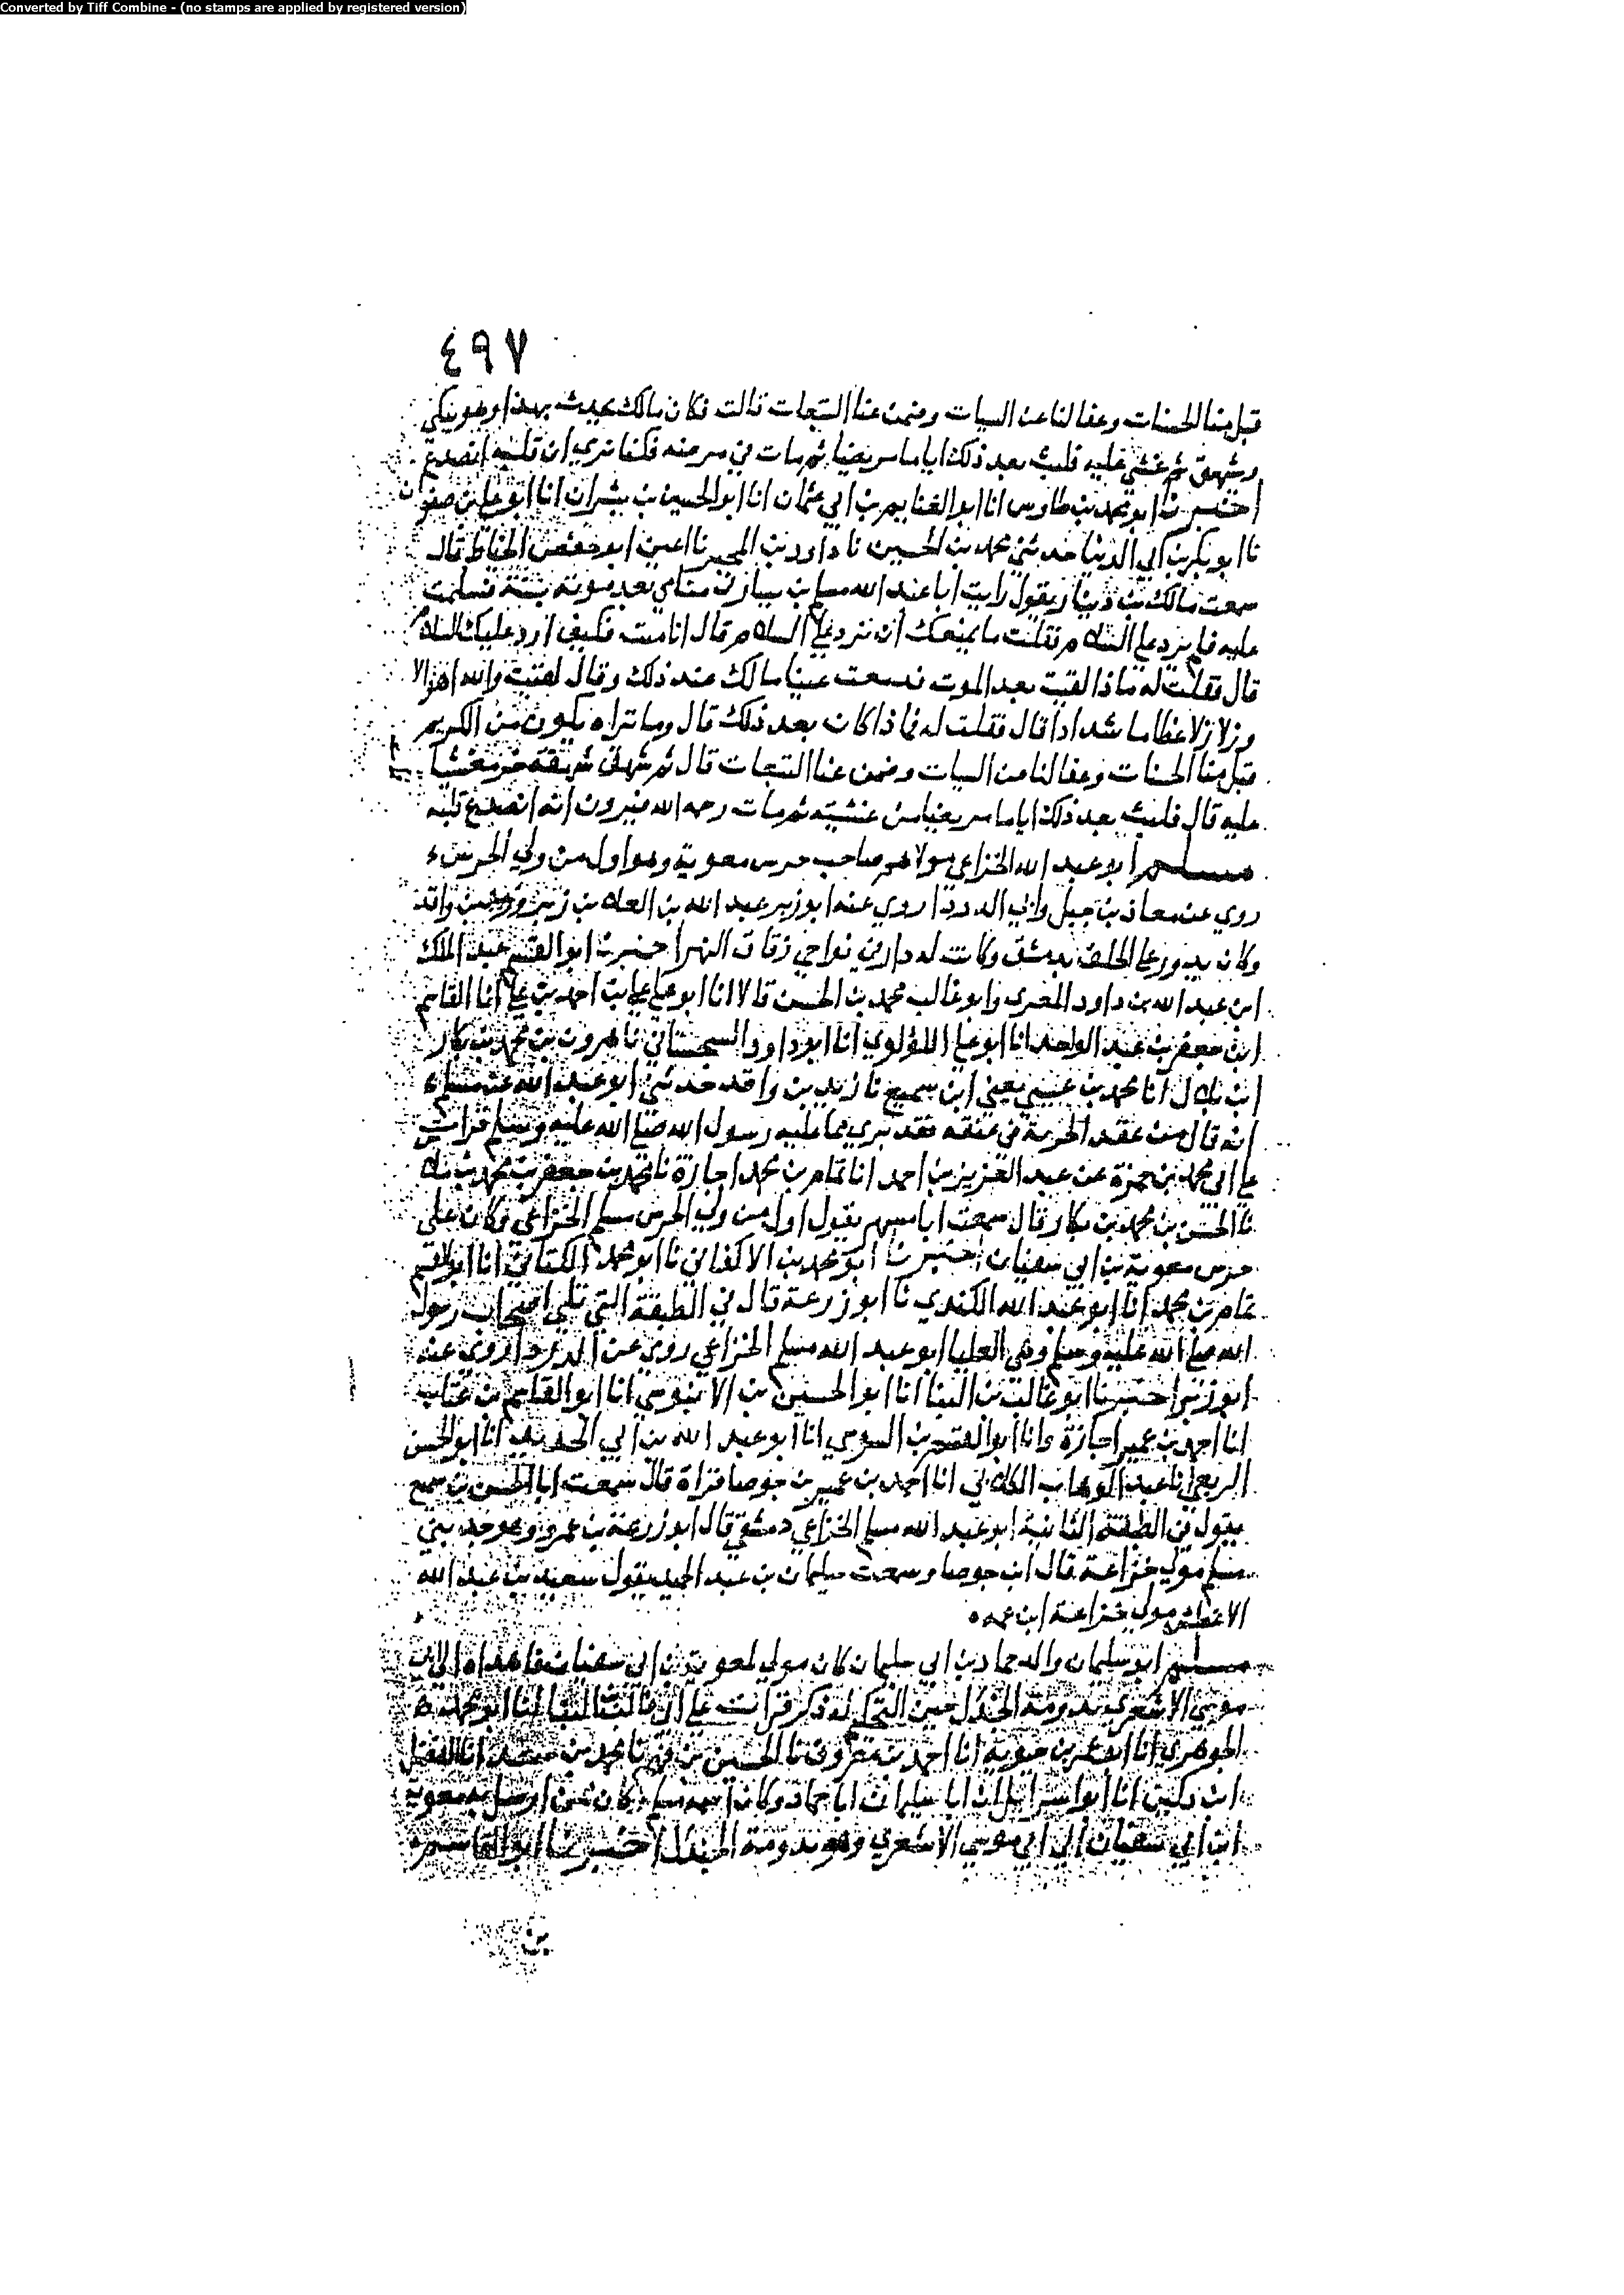 Converted by Tiff Combine - (no stamps are applied by registered version)
٤٩٧
قبل منا الحسنات وعفا لنا عن السيات وضمن عنا التبعات قالت فكان مالك يحدث بهذا وهو يبكي
وشهق ثم غشي عليه فلبث بعد ذلك اياما مريضا ثم مات في مرضه فكنا نري ان قلبه انصدع
اخبرنا ابو محمد بن طاوس انا ابو الغنايم بن ابي عثمان انا ابو الحسين بن بشران انا ابو علي بن صفوان
نا ابو بكر بن ابي الدنيا حدثني محمد بن الحسين نا داود بن المحبر نا اعين ابو حفص الخياط قال
سمعت مالك بن دينار يقول رايت ابا عبد الله مسلم بن يسار في منامي بعد موته بسنة فسلمت
عليه فلم يرد علي السلام فقلت ما يمنعك ان ترد علي السلام قال انا ميت فكيف ارد عليك السلام
قال فقلت له ماذا لقيت بعد الموت فدمعت عينا مالك عند ذلك وقال لقيت والله اهوالا
وزلازلا عظاما شدادا قال فقلت له فماذا كان بعد ذلك قال وما تراه يكون من الكريم
قبل منا الحسنات وعفا لنا من السيات وضمن عنا التبعات قال ثم شهق شهقة خر مغشيا
عليه قال فلبث بعد ذلك اياما مريضا من غشيته ثم مات رحمه الله فيرون انه انصدع قلبه
مسلم ابو عبد الله الخزاعي مولاهم صاحب حرس معوية وهو اول من ولي الحرس
روي عن معاذ بن جبل وابي الدردا روي عنه ابو زبر عبد الله بن العلاء بن زبر وزيد بن واقد
وكان يدور علي الحلق بدمشق وكانت له دار في نواحي زقاق النهر اخبرنا ابو القسم عبد الملك
ابن عبد الله بن داود المغري وابو غالب محمد بن الحسن قالا انا ابو علي علي بن احمد بن علي انا القاسم
ابن جعفر بن عبد الواحد انا ابو علي اللؤلوي انا ابو داود السجستاني نا هرون بن محمد بن بكار
ابن بلال انا محمد بن عيسي يعني ابن سميع نا زيد بن واقد حدثني ابو عبد الله عن معاذ
انه قال من عقد الجزية في عنقه فقد بري مما عليه رسول الله صلي الله عليه وسلم قرات
علي ابي محمد بن حمزة عن عبد العزيز بن احمد انا تمام بن محمد اجازة نا محمد بن جعفر بن محمد بن ملاس
نا الحسن بن محمد بن بكار قال سمعت ابا مسهر يقول اول من ولي الحرس مسلم الخزاعي وكان علي
حرس معوية بن ابي سفيان اخبرنا ابو محمد بن الاكفاني نا ابو محمد الكتاني انا ابو القسم
تمام بن محمد انا ابو عبد الله الكندي نا ابو زرعة قال في الطبقة التي تلي اصحاب رسول
الله صلي الله عليه وسلم وهي العليا ابو عبد الله مسلم الخزاعي روي عن ابي الدردا روي عنه
ابو زبر اخبرنا ابو غالب بن البنا انا ابو الحسين بن الابنوسي انا ابو القاسم بن عتاب
انا احمد بن عمير اجازة وانا ابو القسم بن السوسي انا ابو عبد الله بن ابي الحديد انا ابو الحسن
الربعي انا عبد الوهاب الكلابي انا احمد بن عمير بن جوصا قراة قال سمعت ابا الحسن بن سميع
يقول في الطبقة الثانية ابو عبد الله مسلم الخزاعي دمشقي قال ابو زرعة بن عمرو وهو جد بني
مسلم مولي خزاعة قال ابن جوصا وسمعت سليمان بن عبد الحميد يقول سعيد بن عبد الله
الاغطش مولي خزاعة ابن عمه
مسلم ابو سليمان والد حماد بن ابي سليمان كان مولي لمعوية بن ابي سفيان فاهداه الي ابي
موسي الاشعري بدومة الجندل حين التحكيم له ذكر قرات علي ابي غالب بن البنا انا ابو محمد
الجوهري انا ابو عمر بن حيوية انا احمد بن معروف نا الحسين بن فهم نا محمد بن سعد انا الفضل
ابن دكين انا ابو اسرائيل ان ابا سليمان ابا حماد وكان اسمه مسلم كان ممن ارسل به معوية
ابن ابي سفيان الي ابي موسي الاشعري وهو بدومة الجندل اخبرنا ابو القاسم
بن